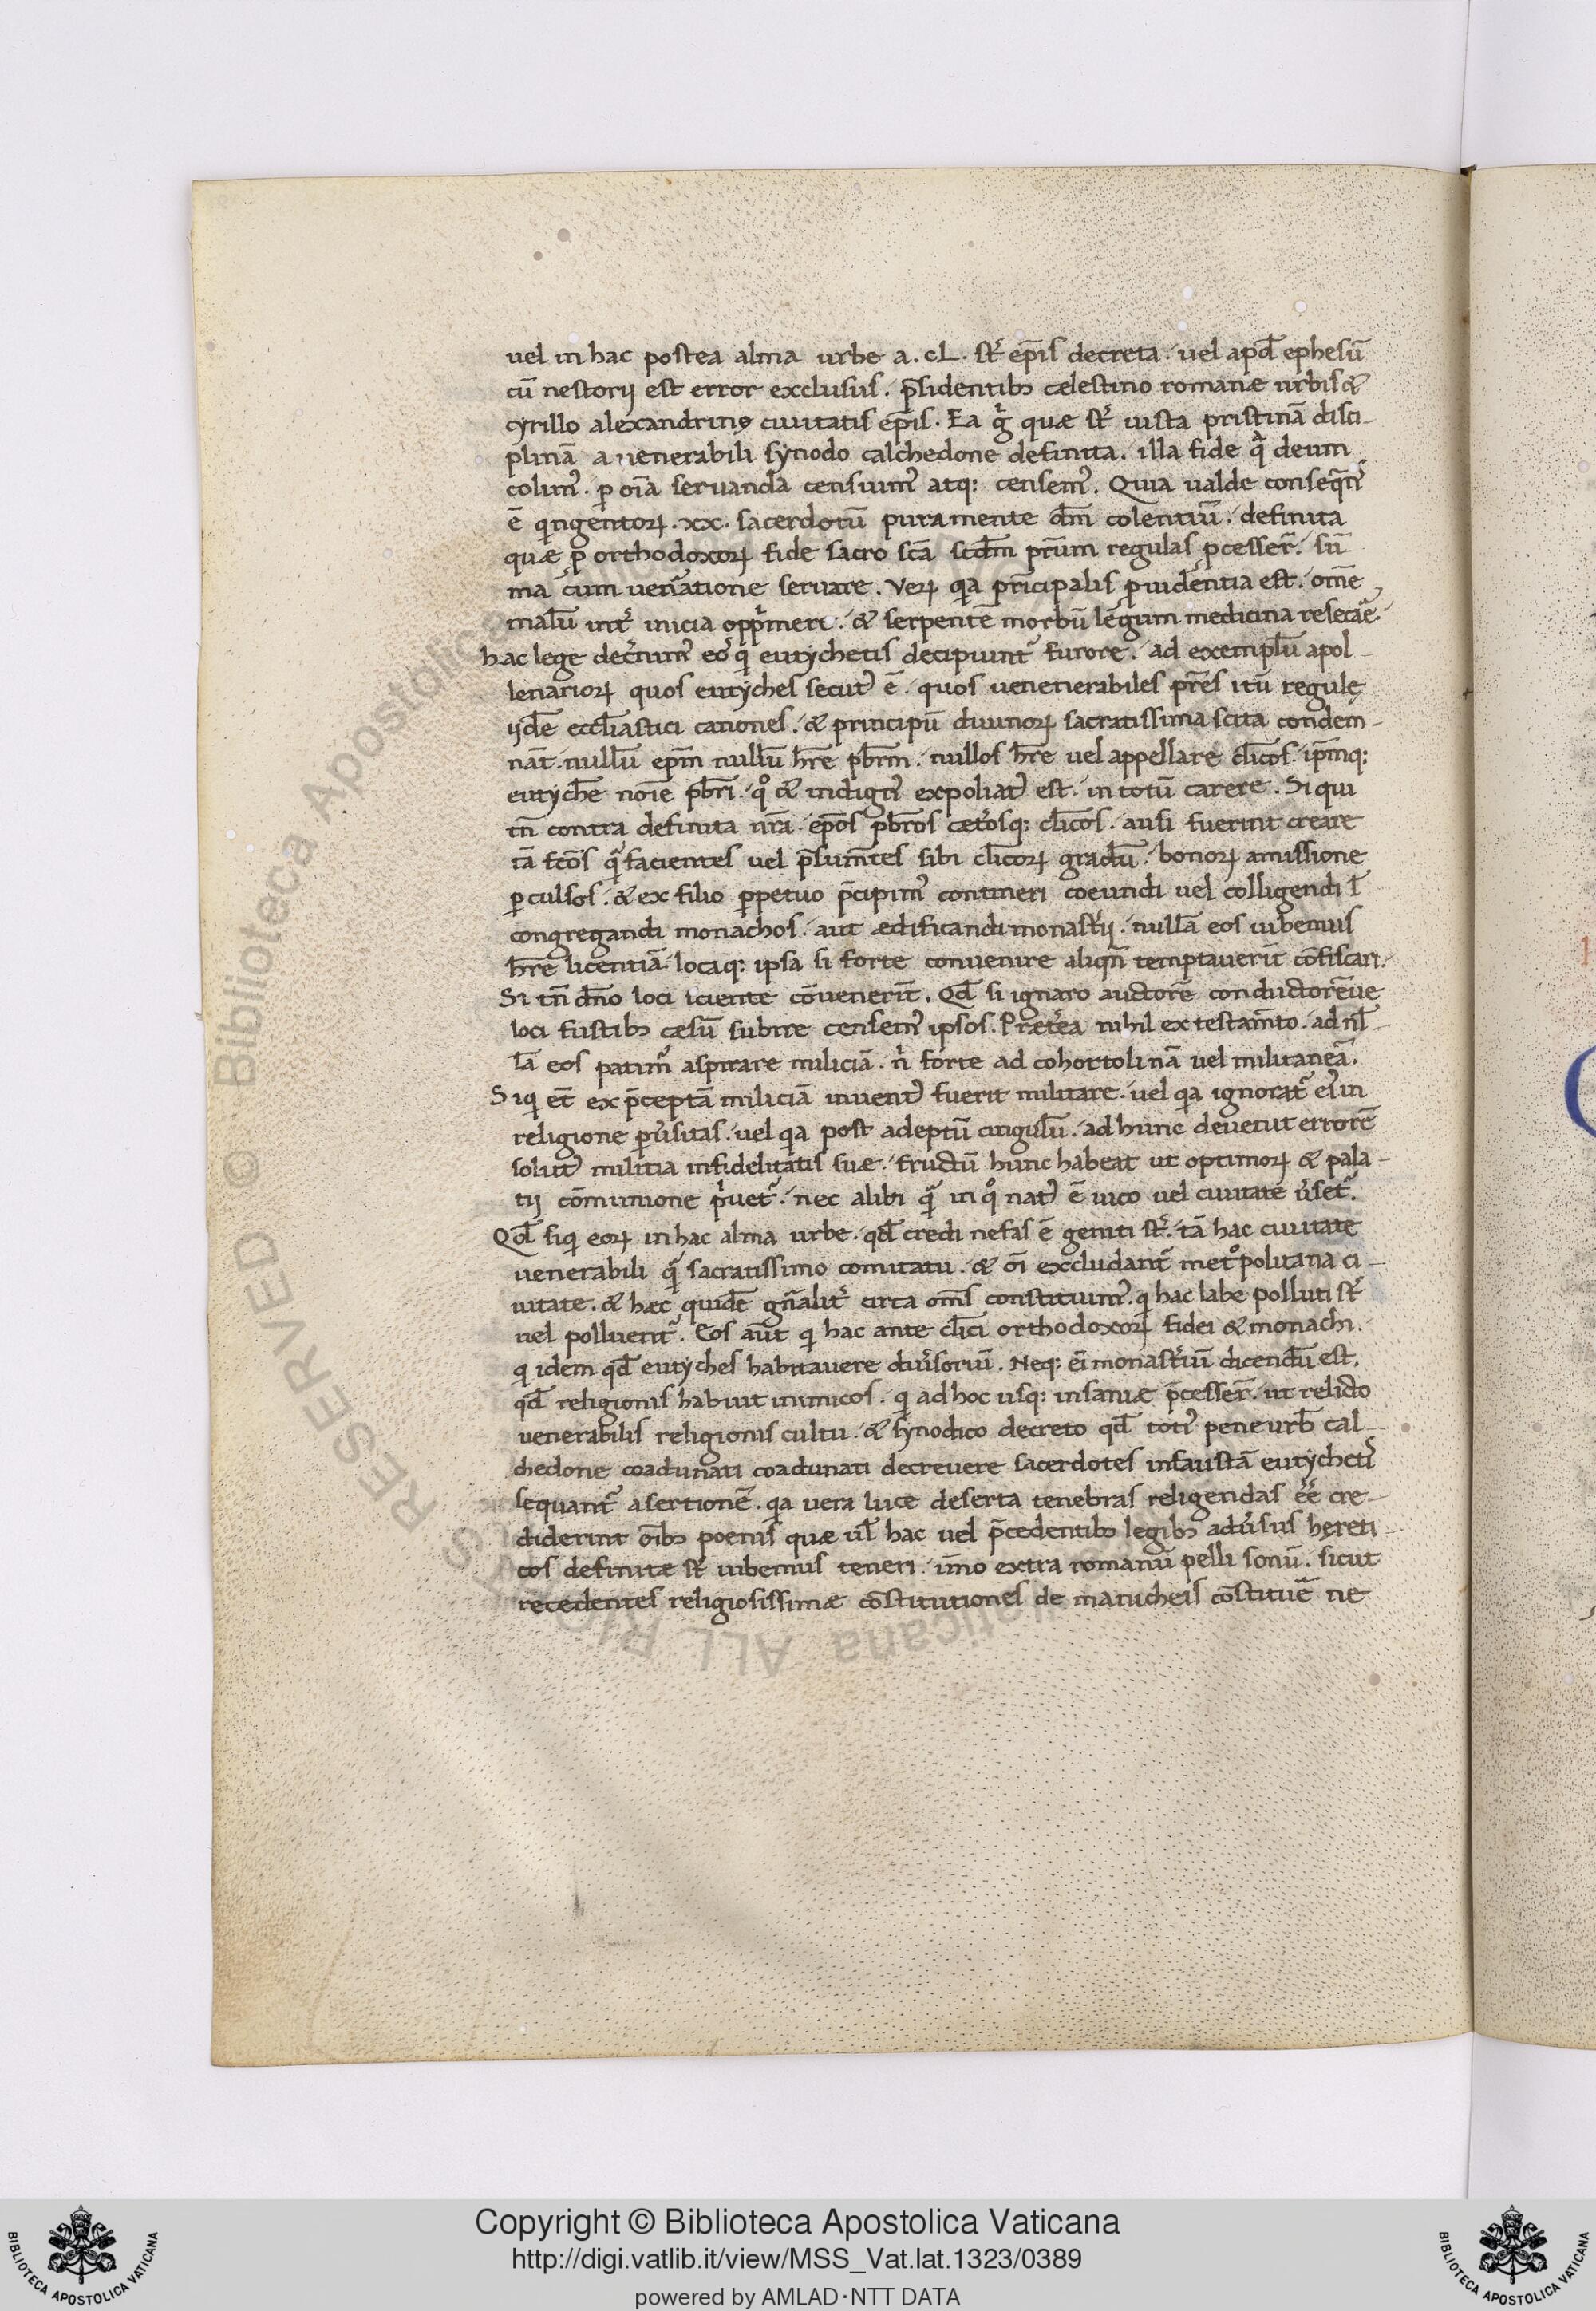 uel in hac postea alma urbe a. cL. st̄ ep̄is decreta. uel apd̄ ephesū
cū nestorij est error exclusus. p̄sidentib; cælestino romanæ urbis &
cyrillo alexandrinę ciuitatis ep̄is. Ea g̊ quæ st̄ iusta pristinā disci-
plinā a uenerabili synodo calchedone definita. illa fide q̄ deum
colim᷒. ꝑ oīa seruanda censuim᷒ atq: censem᷒. Quia ualde conseq̄ns
ē qingentoꝝ. xx. sacerdotū pura mente dm̄ colentiū. definita
quæ ꝑ orthodoxoꝝ fide sacro sc̄a scd̄m pr̄um regulas ꝓcesser̄. sū
ma cum uen̄atione seruare. Veꝝ qia pr̄incipalis ꝓuidentia est. om̄e
malū int̄ inicia opp̄rimere. & serpentē morbū legum medicina resecar̄e.
hac lege dec̄nim᷒ eos qi eutychetis decipiunt᷒ furore. ad exemplū apol-
lenarioꝝ quos eutyches secut᷒ ē. quos uenenerabiles pr̄es itū regulę
ijdē eccl̄iastici canones. & principū diuinoꝝ sacratissima scita condem-
nāt. nullū ep̄m nullū hr̄e pb̄rm. nullos hr̄e uel appellare cl̄icos. ip̄mq:
eutychē noīe pb̄ri. qo & indign᷒ expoliat᷒ est. in totū carere. Si qui
tn̄ contra definita nr̄a. ep̄os pb̄ros cæt̄osq: cl̄icos. ausi fuerint creare
tā fc̄os q̄ facientes uel p̄sumētes sibi cl̄icoꝝ gradū. bonoꝝ amissione
ꝑculsos. & ex silio ꝑpetuo p̄cipim᷒ contineri coeundi uel colligendi ł
congregandi monachos. aut ædificandi monast̄ij. nullā eos iubemus
hr̄e licentiā. locaq: ipsa si forte conuenire aliqn̄ temptauerīt cōfiscari.
Si tn̄ dn̄o loci iciente cōuenerīt. Qd̄ si ignaro auctorē conductorēue
loci fustib; cæsū subire censem᷒ ipsos. Præt̄ea nihil ex testam̄to. ad nł-
lā eos patim᷒ aspirare miliciā. n̄ forte ad cohortolinā uel militaneā.
Siqi et̄ ex p̄ceptā miliciā inuent᷒ fuerit militare. uel qia ignorat᷒ ei᷒ in
religione ꝑu̇sitas. uel qia post adeptū cingulū. ad hunc deuenit errorē
solut᷒ militia infidelitatis suæ. fructū hunc habeat ut optimoꝝ & pala-
tij cōmunione p̄uet᷒. nec alibi q̄ in qo nat᷒ ē uico uel ciuitate u̇set᷒.
Qd̄ siqi eoꝝ in hac alma urbe. qd̄ credi nefas ē geniti st̄. tā hac ciuitate
uenerabili q̄ sacratissimo comitatu. & oī excludant᷒ metropolitana ci-
uitate. & hæc quidē gn̄alit̄ circa om̄s constituim᷒. qi hac labe polluti st̄
uel polluent᷒. Eos aūt qi hac ante cl̄ici orthodoxoꝝ fidei & monachi.
qi idem qd̄ eutyches habitauere diu̇soriū. Neq: ei̅ monast̄iū dicendū est.
qd̄ religionis habuit inimicos. qi ad hoc usq: insaniæ p̄cesser̄. ut relicto
uenerabilis religionis cultu. & synodico decreto qd̄ toti᷒ pene urb̄ cal-
chedone coadunati coadunati decreuere sacerdotes infaustā eutychetis
sequant᷒ asertionē. qia uera luce deserta tenebras religendas eē cre-
diderint oīb; poenis quæ uł hac uel p̄cedentib; legib; adu̇sus hęreti-
cos definitæ st̄ iubemus teneri. īmo extra romanū pelli sonū. sicut
recedentes religiosissimæ cōstitutiones de manicheis cōstituēr ne
Copyright © Biblioteca Apostolica Vaticana
http://digi.vatlib.it/view/MSS_Vat.lat.1323/0389
powered by AMLAD·NTT DATA